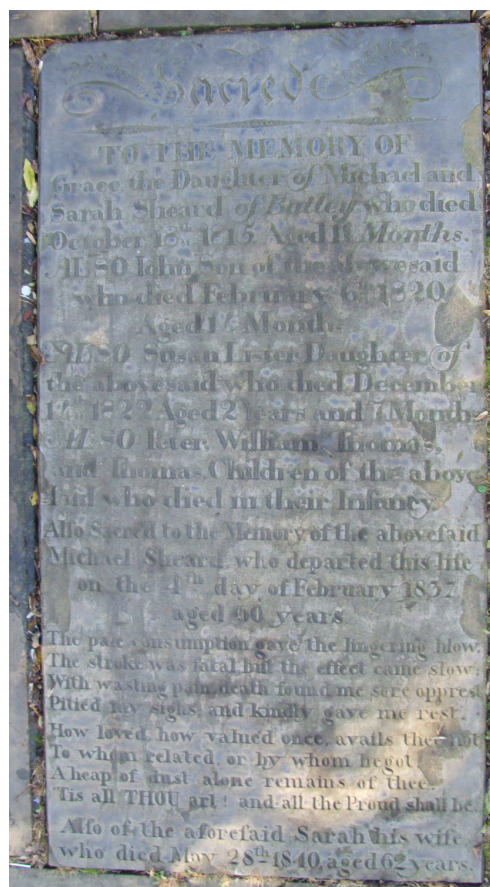 Sacred
TO THE MEMORY OF
Grace the Daughter of Michael and
Sarah Sheard of Batley who died
October 18th 1815 Aged 11 Months.
ALSO John Son of the abovesaid
who died February 6th 1820
Aged Months
ALSO Susan Lister Daughter of
the abovesaid who died December
1822 Aged 2 Years and 7 Months
ALSO Peter, William, Thomas,
and Thomas, Children of the above
said who died in their Infancy
Also Sacred to the Memory of the abovesaid
Michael Sheard, who departed this life
on the 4th day of February 1837
aged 60 years
The pale consumption gave the lingering blow,
The stroke was fatal but the effect came slow;
With wasting pain, death found me sore opprest
Pitied my sighs, and kindly gave me rest.
How loved, how valued once, avails thee not
To whom related, or by whom begot
A heap of dust alone remains of thee.
'Tis all THOU art! and all the Proud shall be.
Also of the aforesaid Sarah his wife
who died May 28th 1840, aged 62 years.